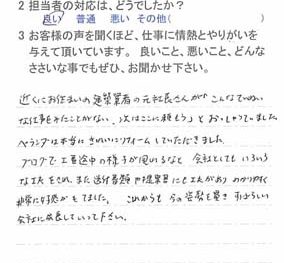 2 担当者の対応は、どうでしたか？
良い　普通　悪い　その他(　　　)
3 お客様の声を聞くほど、仕事に情熱とやりがいを
与えて頂いています。 良いこと、悪いこと、どんな
ささいな事でもぜひ、お聞かせ下さい。
近くにお住まいの建築業者の元社長さんが「こんなていねい
な仕事みたことがない、次はここに頼もう」とおっしゃっていました。
ベランダは本当にきれいにリフォームしていただきました。
ブログで工事途中の様子が見れるなど 会社としていろいろ
な工夫をされ、また送付書類や提案書にも工夫があり わかりやすく
非常に好感がもてました。これからも今の姿勢を貫き すばらしい
会社に成長していって下さい。